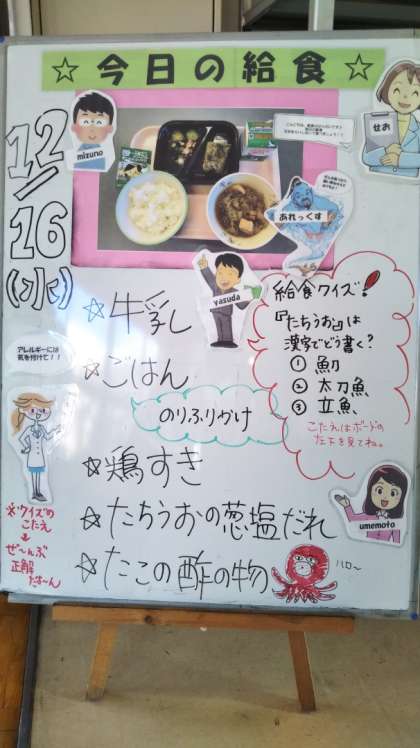 ☆今日の給食☆
12/16
(水)
mizuno
せお
あれっくす
yasuda
☆牛乳
☆ごはん
のりふりかけ
☆鶏すき
☆たちうおの葱塩だれ
☆たこの酢の物
ハロ～
給食クイズ!
『たちうお』は
漢字でどう書く?
① 魛
② 太刀魚
③ 立魚
こたえはボードの
左下を見てね。
umemoto
アレルギーには
気を付けて!!
※クイズの
こたえ
↓
ぜ～んぶ
正解
だよ～ん